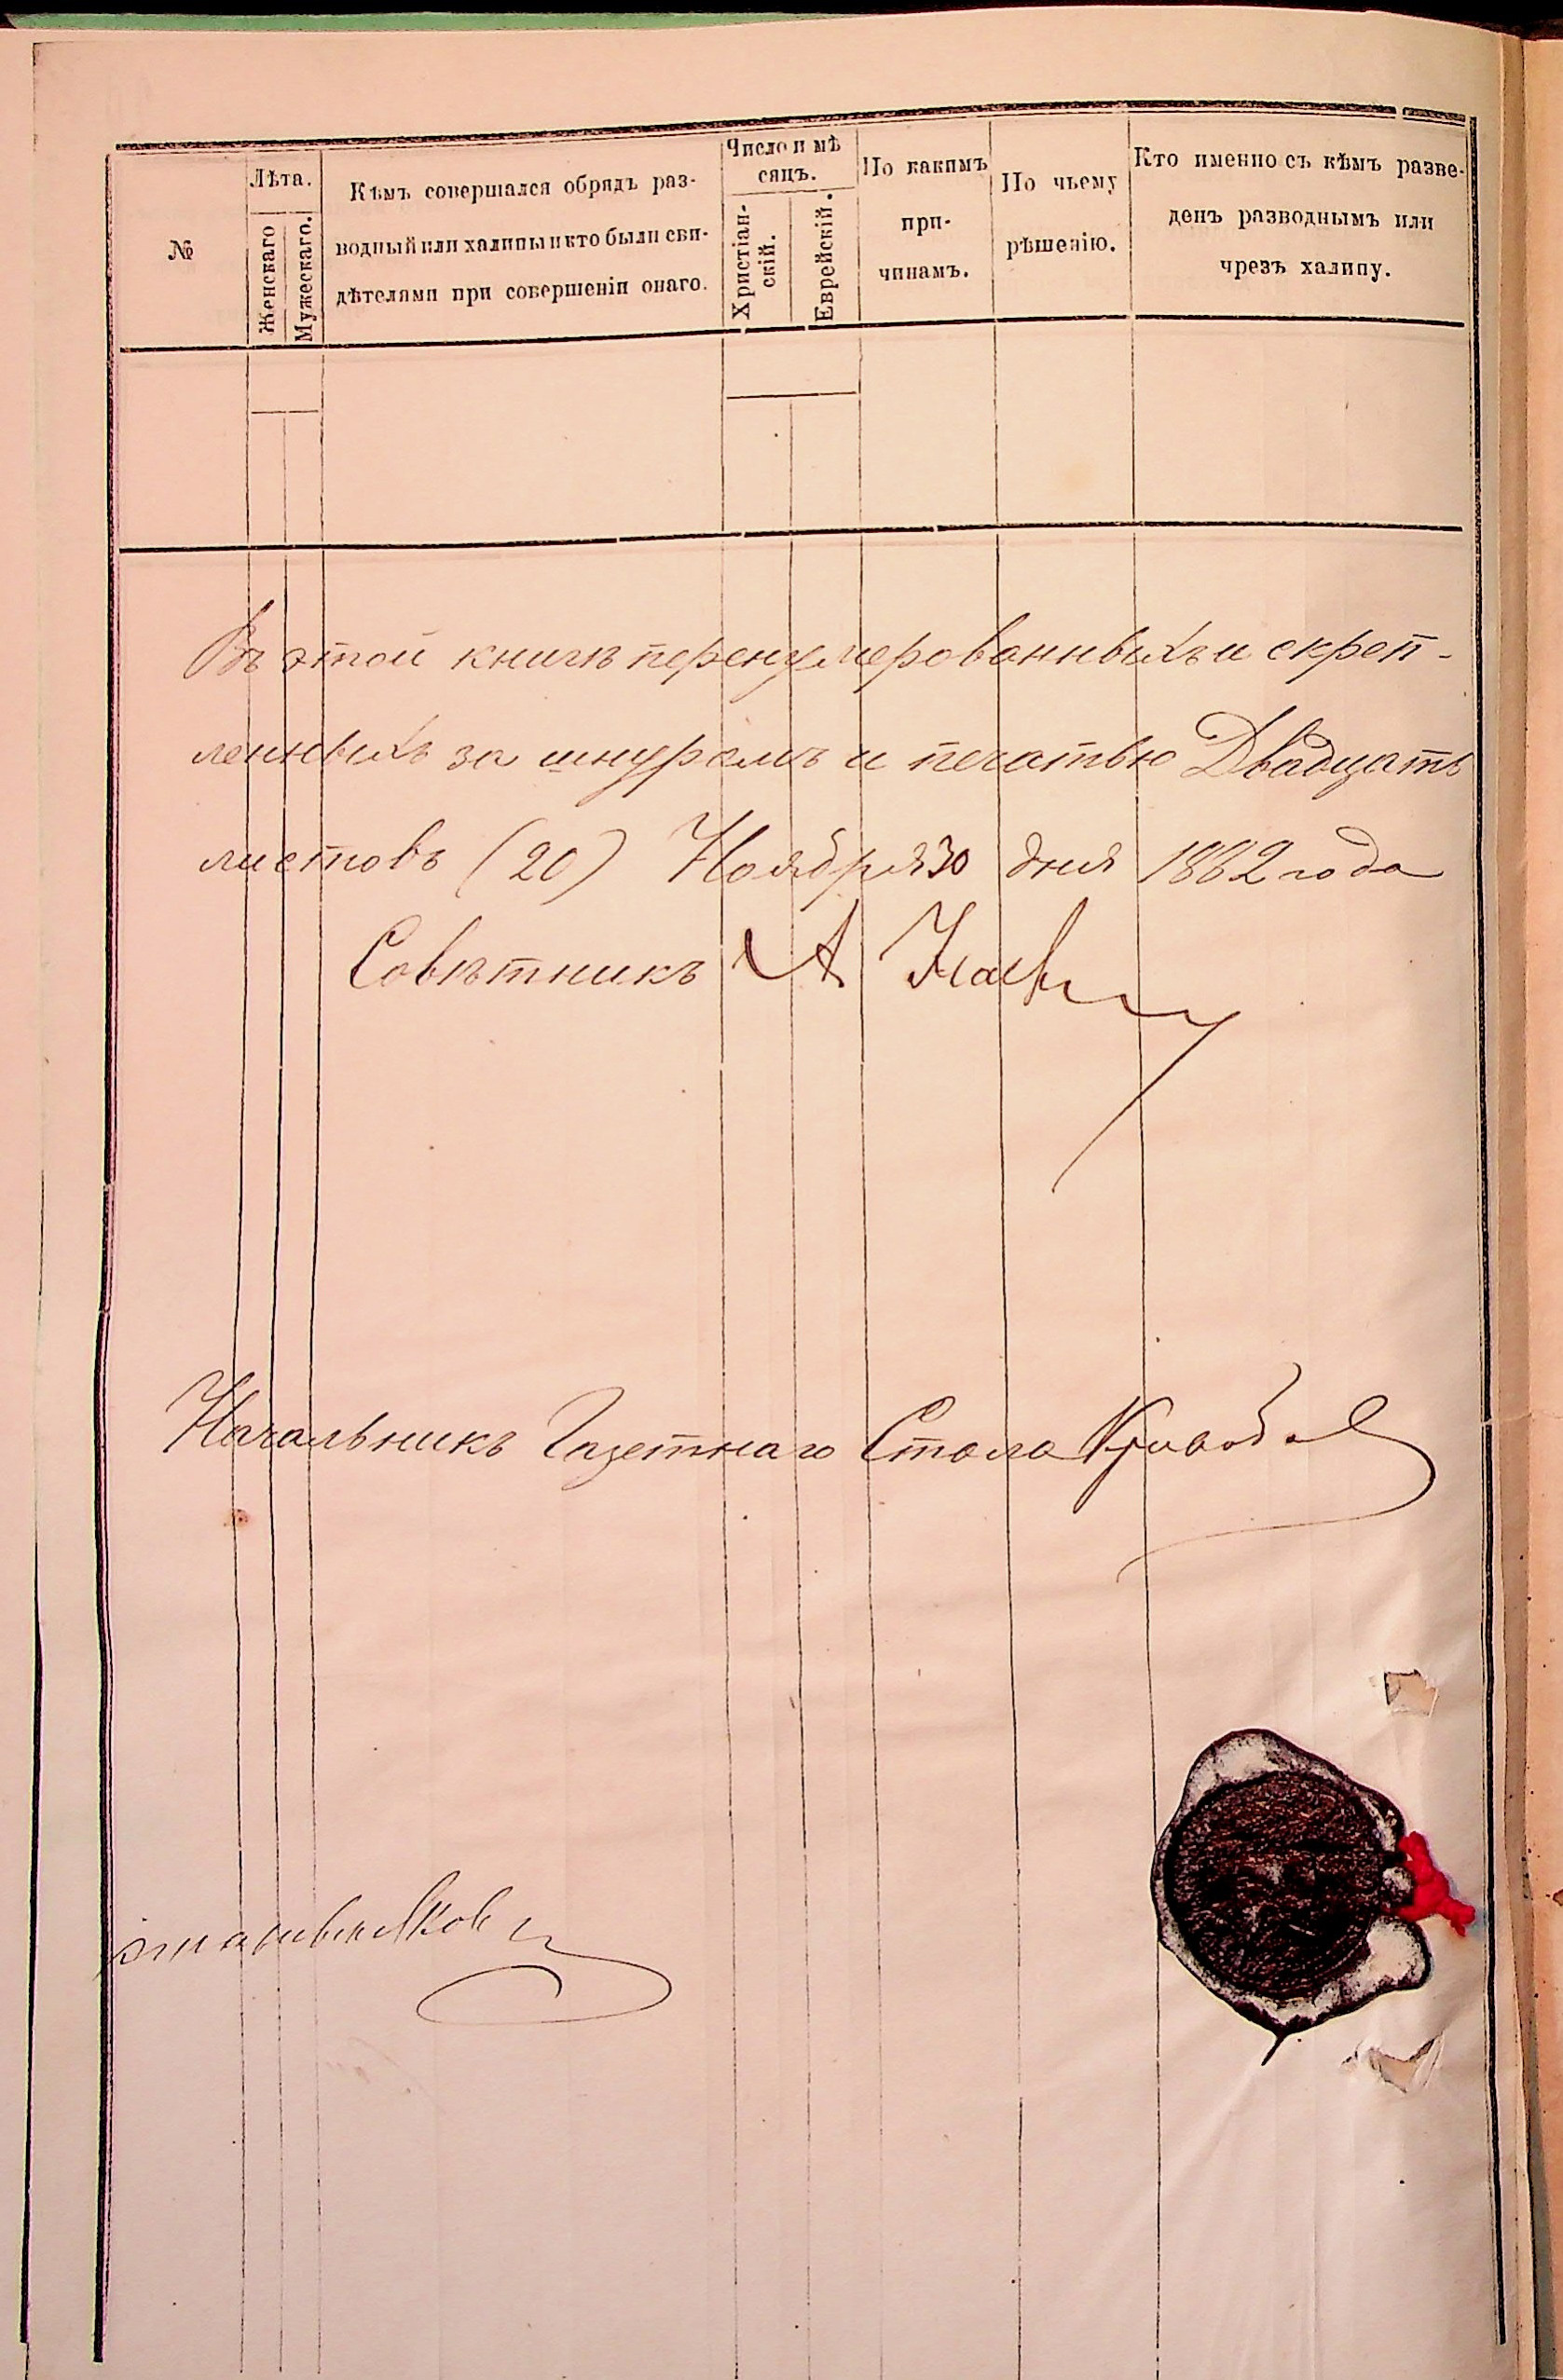 №
Лѣта.
Женскаго
Мужескаго.
Кѣмъ совершался обрядъ раз-
водный или халицы и кто были сви-
дѣтелями при совершеніи онаго.
Число и мѣ
сяцъ.
Христіан-
скій.
Еврейскій.
По какимъ
при-
чинамъ.
По чьему
рѣшенію.
Кто именно съ кѣмъ разве-
денъ разводнымъ или
чрезъ халицу.
Въ этой книгѣ перенумерованныхъ и скреп-
ленныхъ за шнуромъ и печатью Двадцать
листовъ (20) Ноября 30 дня 1862 года
Совѣтникъ А
Начальникъ Газетнаго Стола